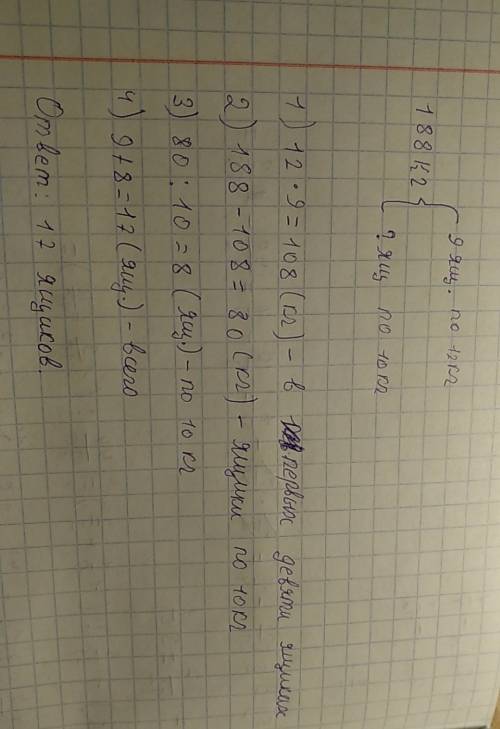 188 кг { 9 ящ. по 12 кг
? ящ по 10 кг
1) 12 · 9 = 108 (кг) - в первых девяти ящиках
2) 188 - 108 = 80 (кг) - ящики по 10 кг
3) 80 : 10 = 8 (ящ.) - по 10 кг
4) 9 + 8 = 17 (ящ.) - всего
Ответ: 17 ящиков.